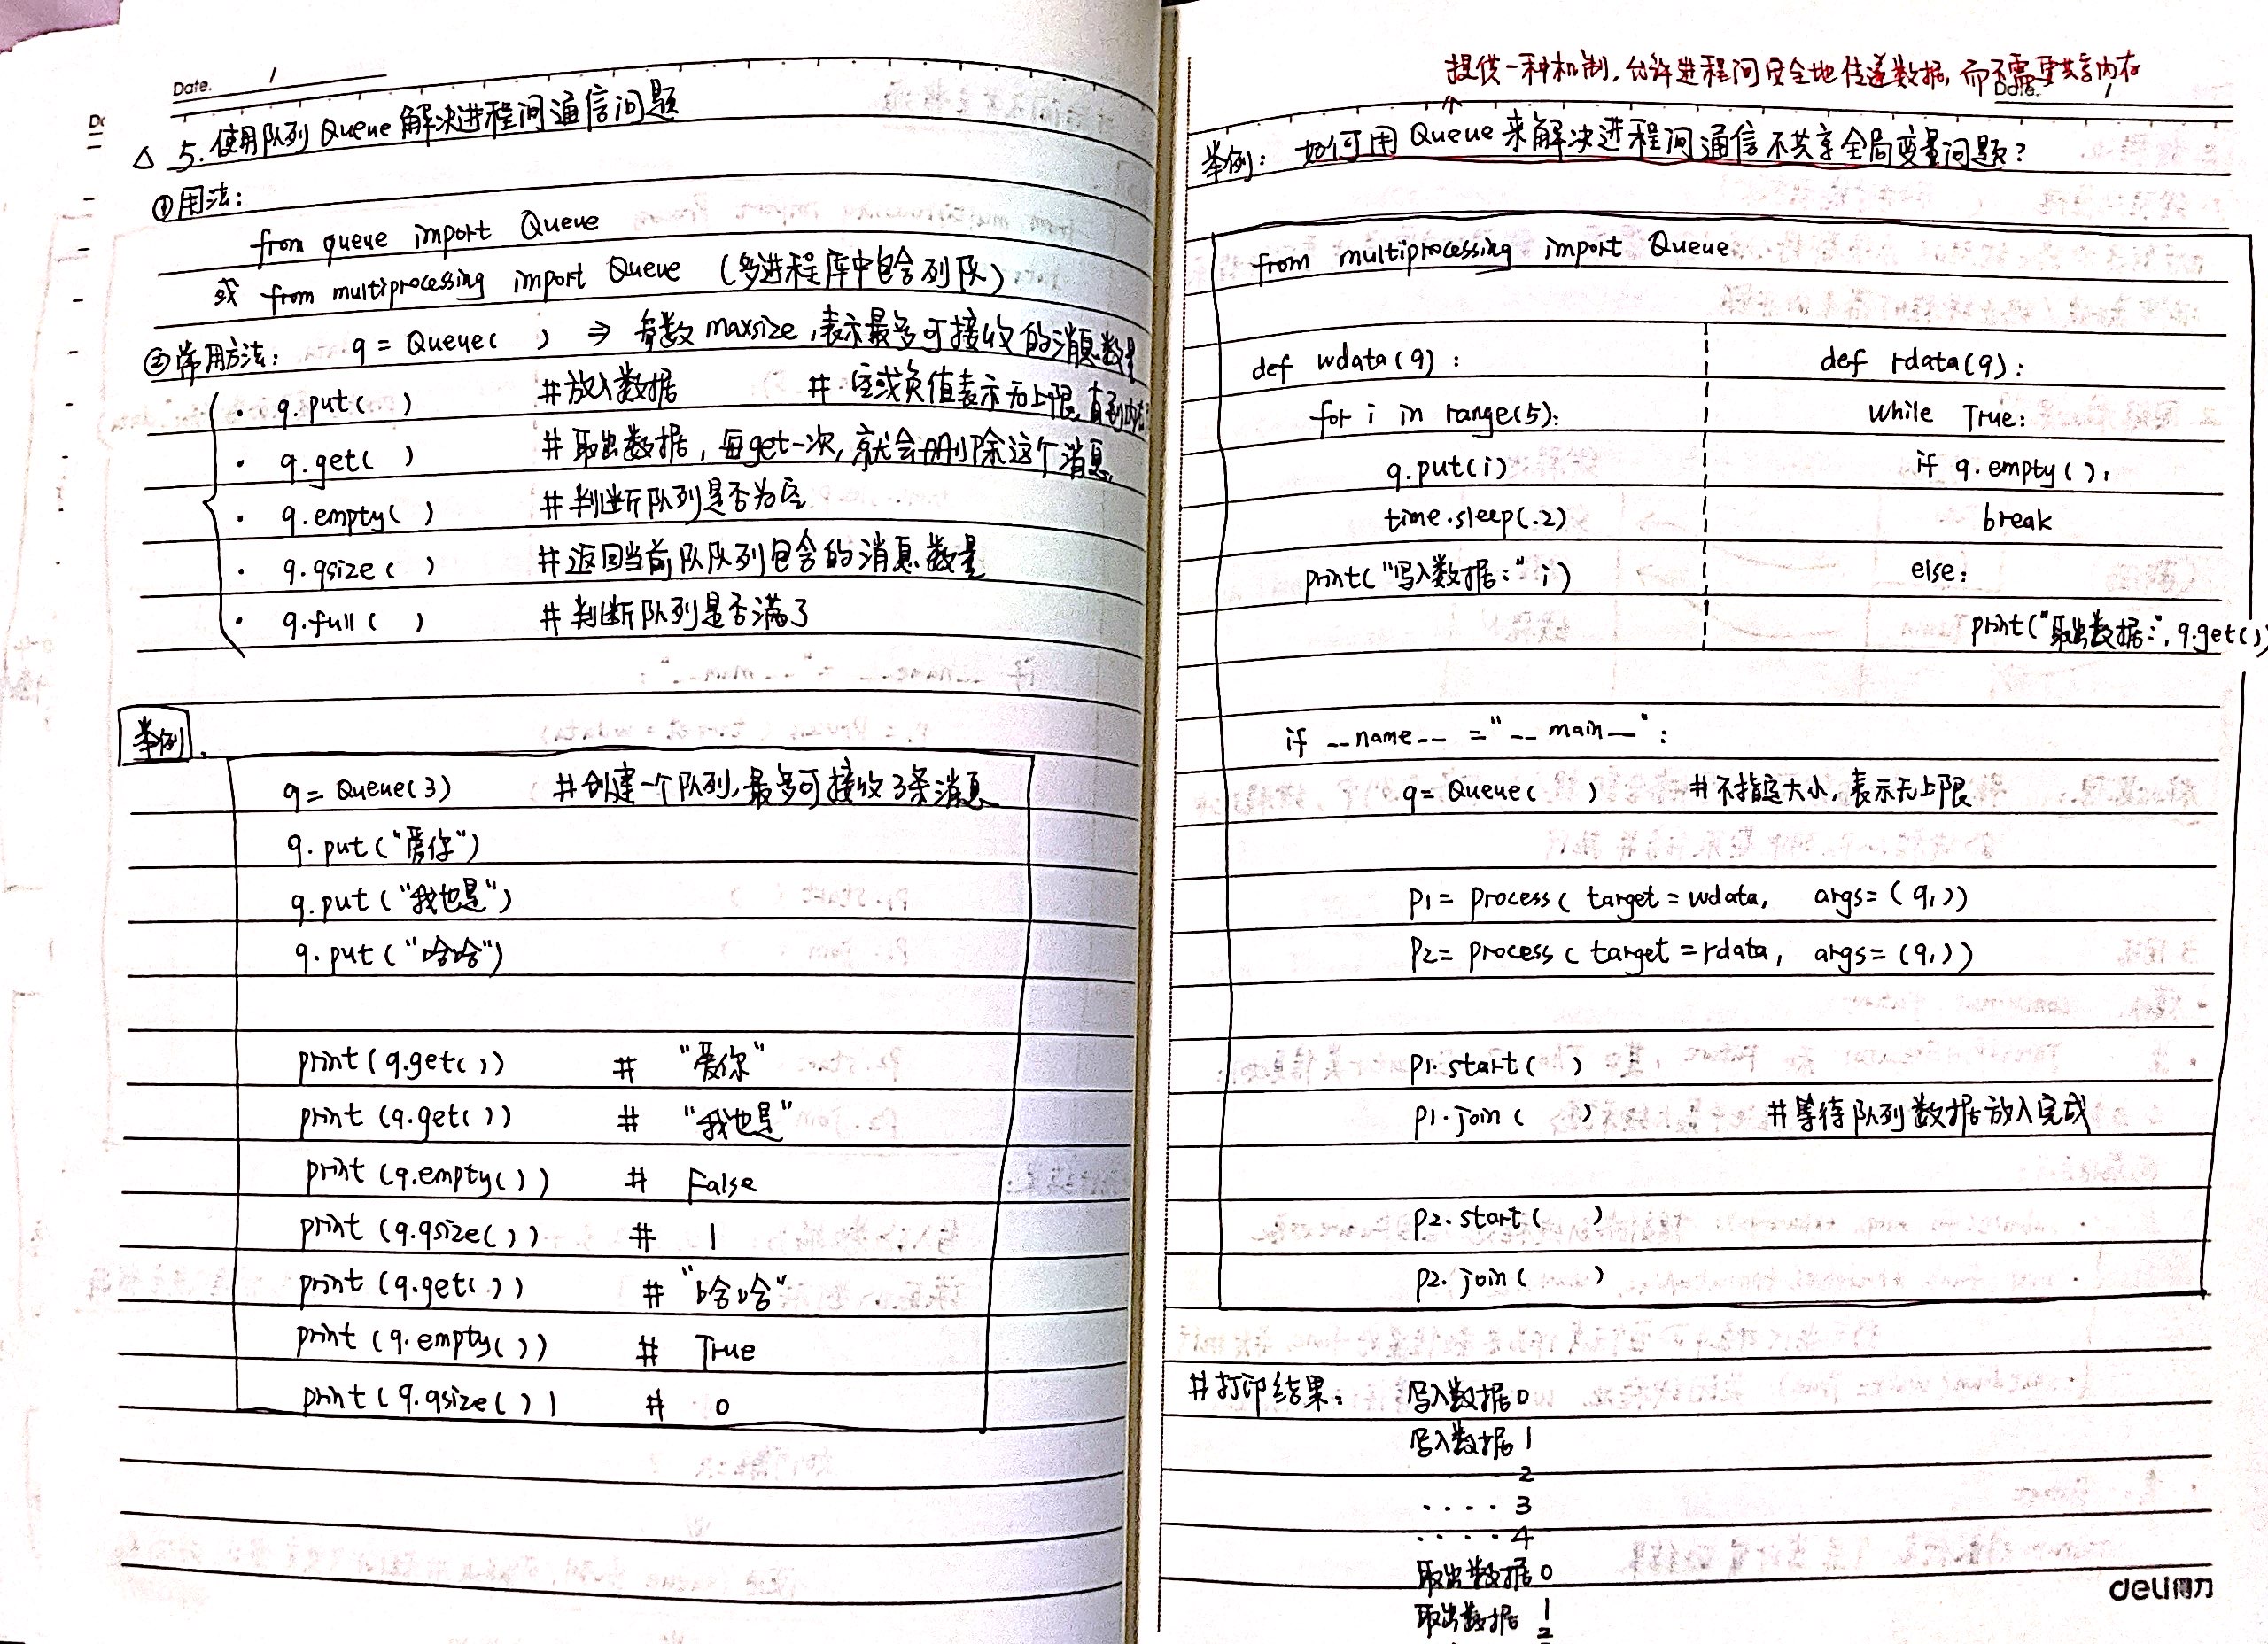 Date. /
△ 5. 使用队列 Queue 解决进程间通信问题
①用法:
from queue import Queue
或 from multiprocessing import Queue (多进程库中包含列队)
②常用方法: q = Queue( ) ⇒ 参数 maxsize,表示最多可接收的消息数量
· q.put( ) #放入数据 # 空或负值表示无上限,直到内存
· q.get( ) # 取出数据,每get一次,就会删除这个消息
· q.empty( ) #判断队列是否为空
· q.qsize( ) #返回当前队队列包含的消息数量
· q.full( ) #判断队列是否满了
举例
q= Queue(3) #创建一个队列,最多可接收3条消息
q.put("爱你")
q.put("我也是")
q.put("哈哈")
print(q.get()) # "爱你"
print(q.get()) # "我也是"
print(q.empty()) # False
print(q.qsize()) # 1
print(q.get()) # "哈哈"
print(q.empty()) # True
print(q.qsize()) # 0
提供一种机制,允许进程间安全地传递数据,而不需要共享内存
Date. /
举例: 如何用 Queue 来解决进程间通信不共享全局变量问题?
from multiprocessing import Queue
def wdata(q): def rdata(q):
for i in range(5): while True:
q.put(i) if q.empty():
time.sleep(.2) break
print("写入数据:" i) else:
print("取出数据:", q.get())
if __name__ ="__main__":
q= Queue( ) #不指定大小,表示无上限
p1= process( target=wdata, args=(q,))
p2= process( target=rdata, args=(q,))
p1.start( )
p1.join( ) #等待队列数据放入完成
p2.start( )
p2.join( )
#打印结果: 写入数据0
写入数据1
·····2
····3
·····4
取出数据0
取出数据 1
2
deli得力